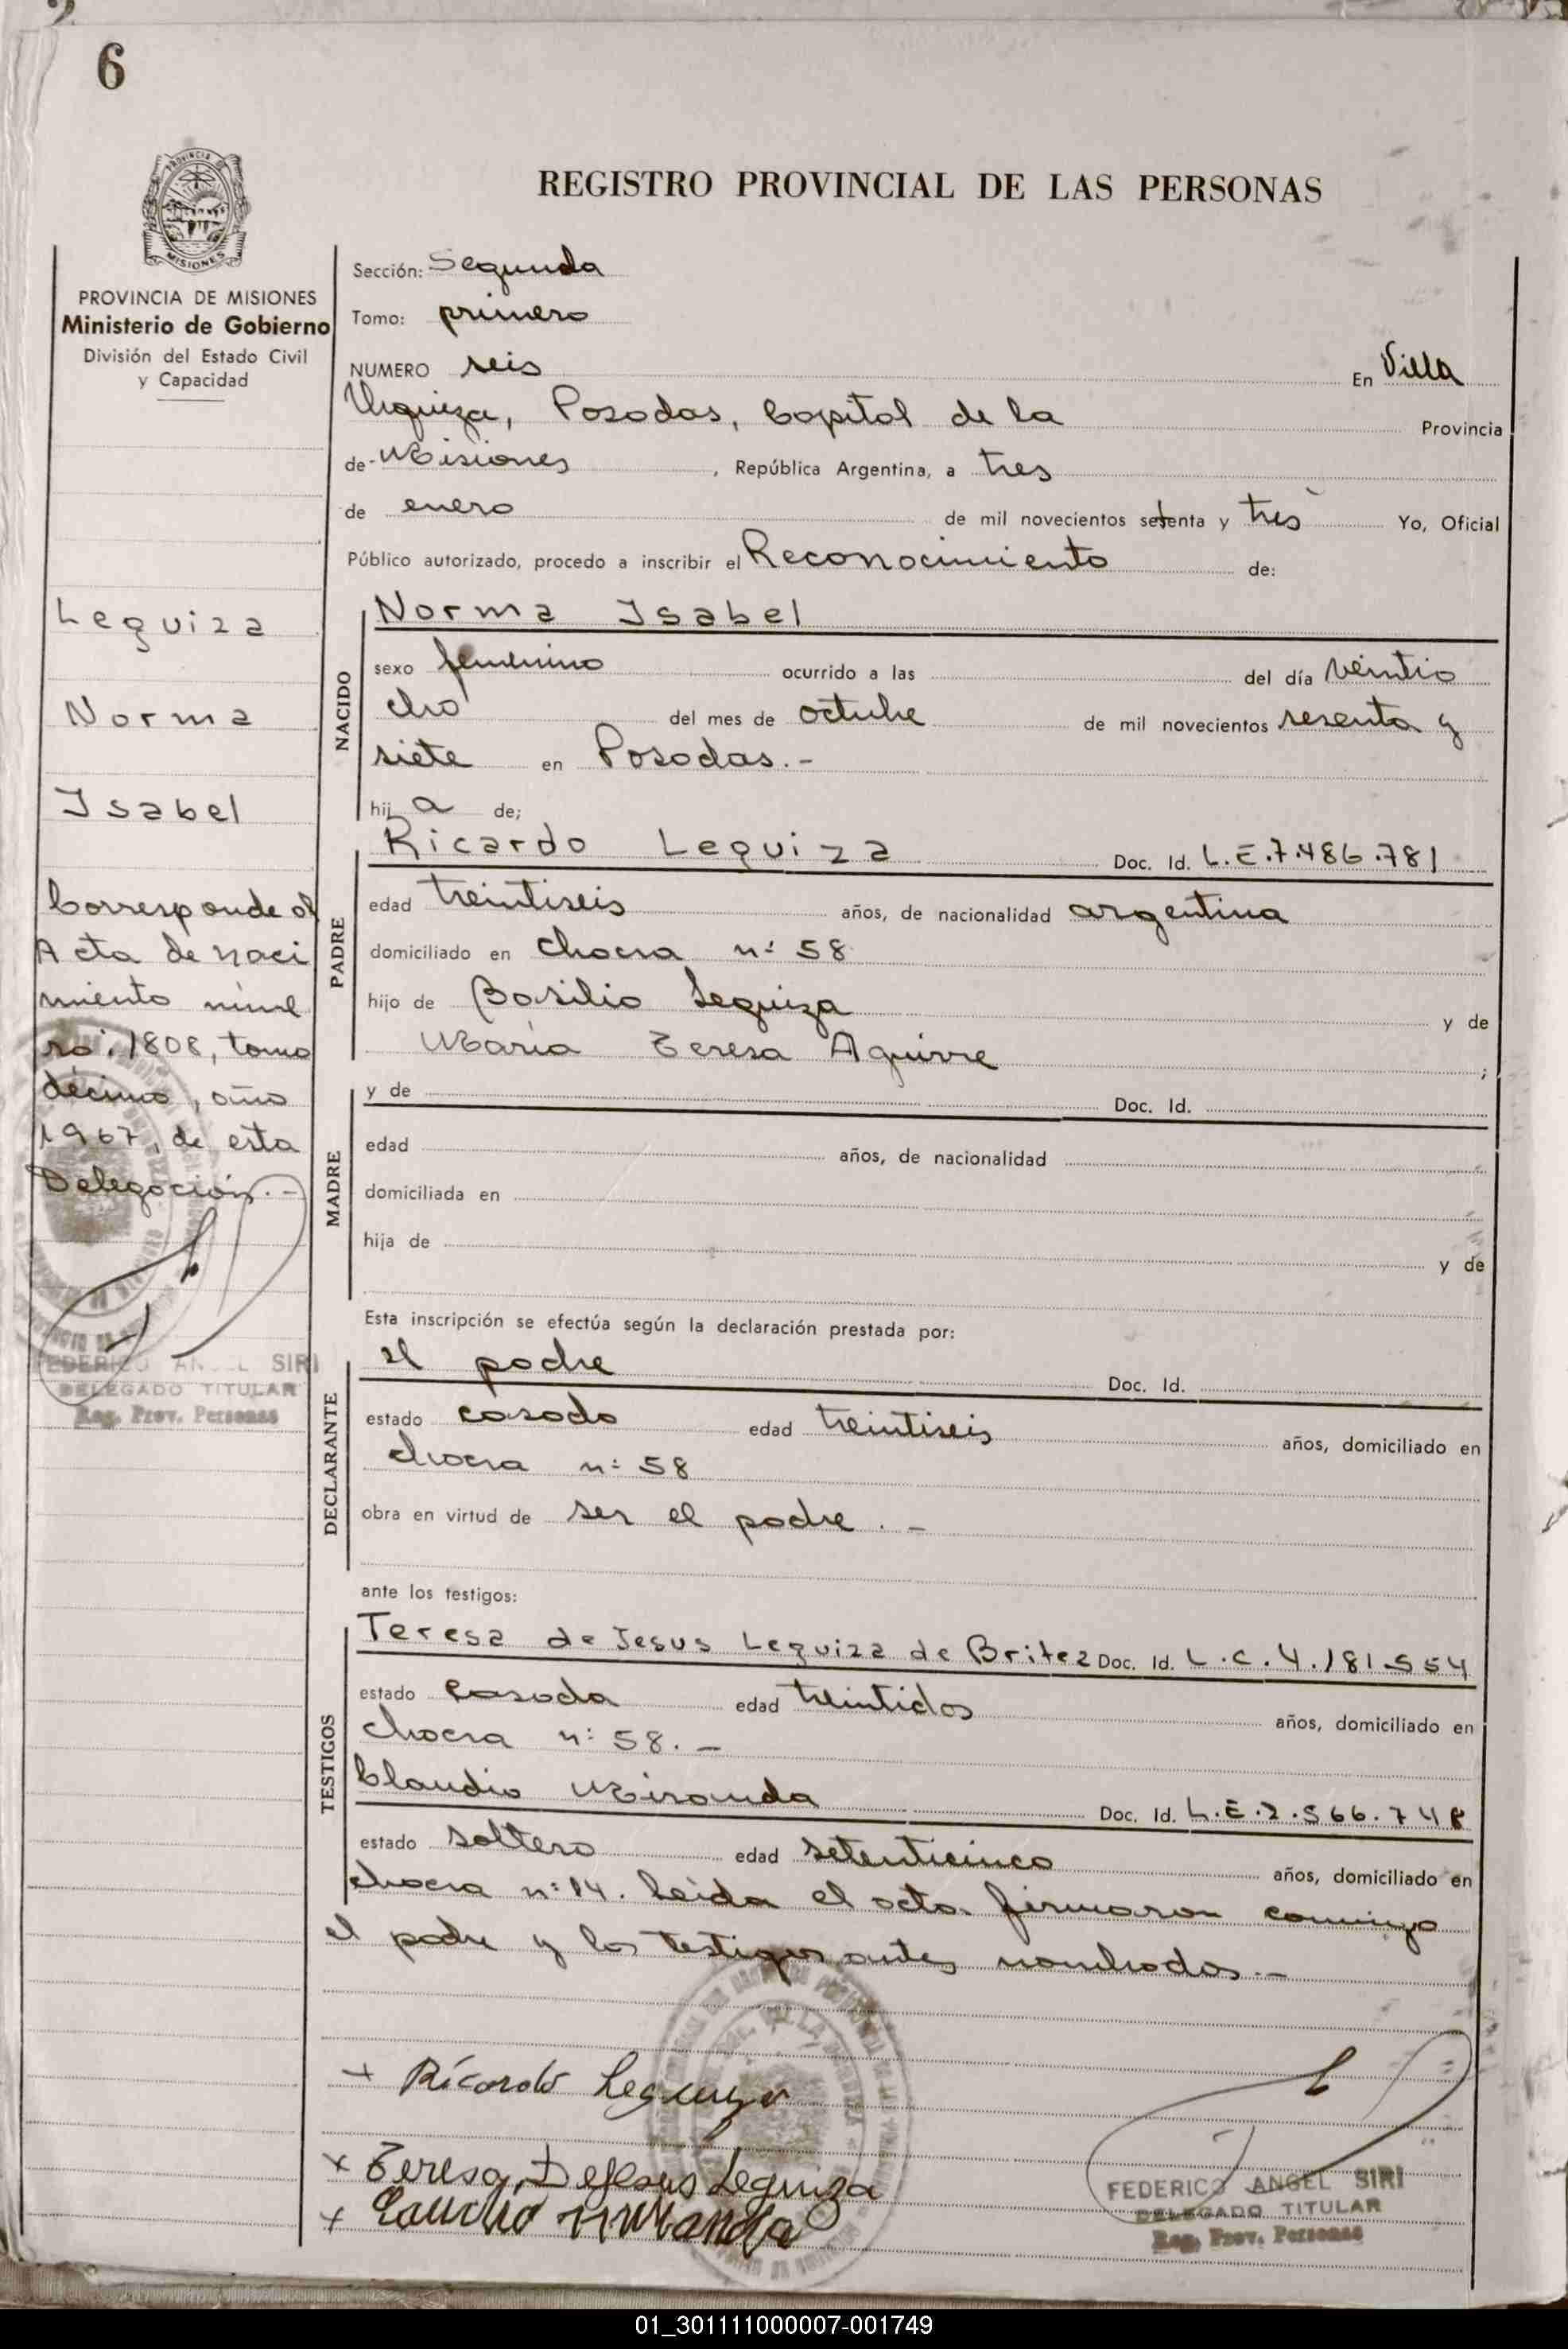 6
PROVINCIA DE MISIONES
Ministerio de Gobierno
División del Estado Civil
y Capacidad
Leguiza
Norma
Isabel
Corresponde al
Acta de naci
miento núme
ro: 1808, tomo
décimo, año
1967, de esta
Delegación.-
FEDERICO ANGEL SIRI
DELEGADO TITULAR
Reg. Prov. Personas
REGISTRO PROVINCIAL DE LAS PERSONAS
Sección: Segunda
Tomo: primero
NUMERO seis En Villa
Urquiza, Posadas, Capital de la Provincia
de Misiones, República Argentina, a tres
de enero de mil novecientos setenta y tres Yo, Oficial
Público autorizado, procedo a inscribir el Reconocimiento de:
NACIDO
Norma Isabel
sexo femenino ocurrido a las del día veintio
cho del mes de octubre de mil novecientos sesenta y
siete en Posadas.-
hija de;
PADRE
Ricardo Leguiza Doc. Id. L.E.7.486.781
edad treintiseis años, de nacionalidad argentina
domiciliado en chacra n: 58
hijo de Basilio Leguiza y de
María Teresa Aguirre ;
MADRE
y de Doc. Id.
edad años, de nacionalidad
domiciliada en
hija de y de
Esta inscripción se efectúa según la declaración prestada por:
DECLARANTE
el padre Doc. Id.
estado casado edad treintiseis años, domiciliado en
chacra n: 58
obra en virtud de ser el padre.-
ante los testigos:
TESTIGOS
Teresa de Jesus Leguiza de Britez Doc. Id. L.C.4.181.554
estado casada edad treintidos años, domiciliado en
chacra n: 58.-
Claudio Miranda Doc. Id. L.E.2.566.748
estado soltero edad setenticinco años, domiciliado en
chacra n: 14. Leida el acta firmaron conmigo
el padre y los testigos antes nombrados.-
+ Ricardo Leguiza
x Teresa Dejesus Leguiza
+ Claudio Miranda
FEDERICO ANGEL SIRI
DELEGADO TITULAR
Reg. Prov. Personas
01_301111000007-001749